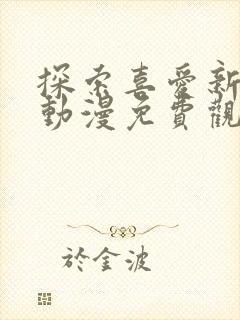 探索喜愛新
動漫免費觀
於金波